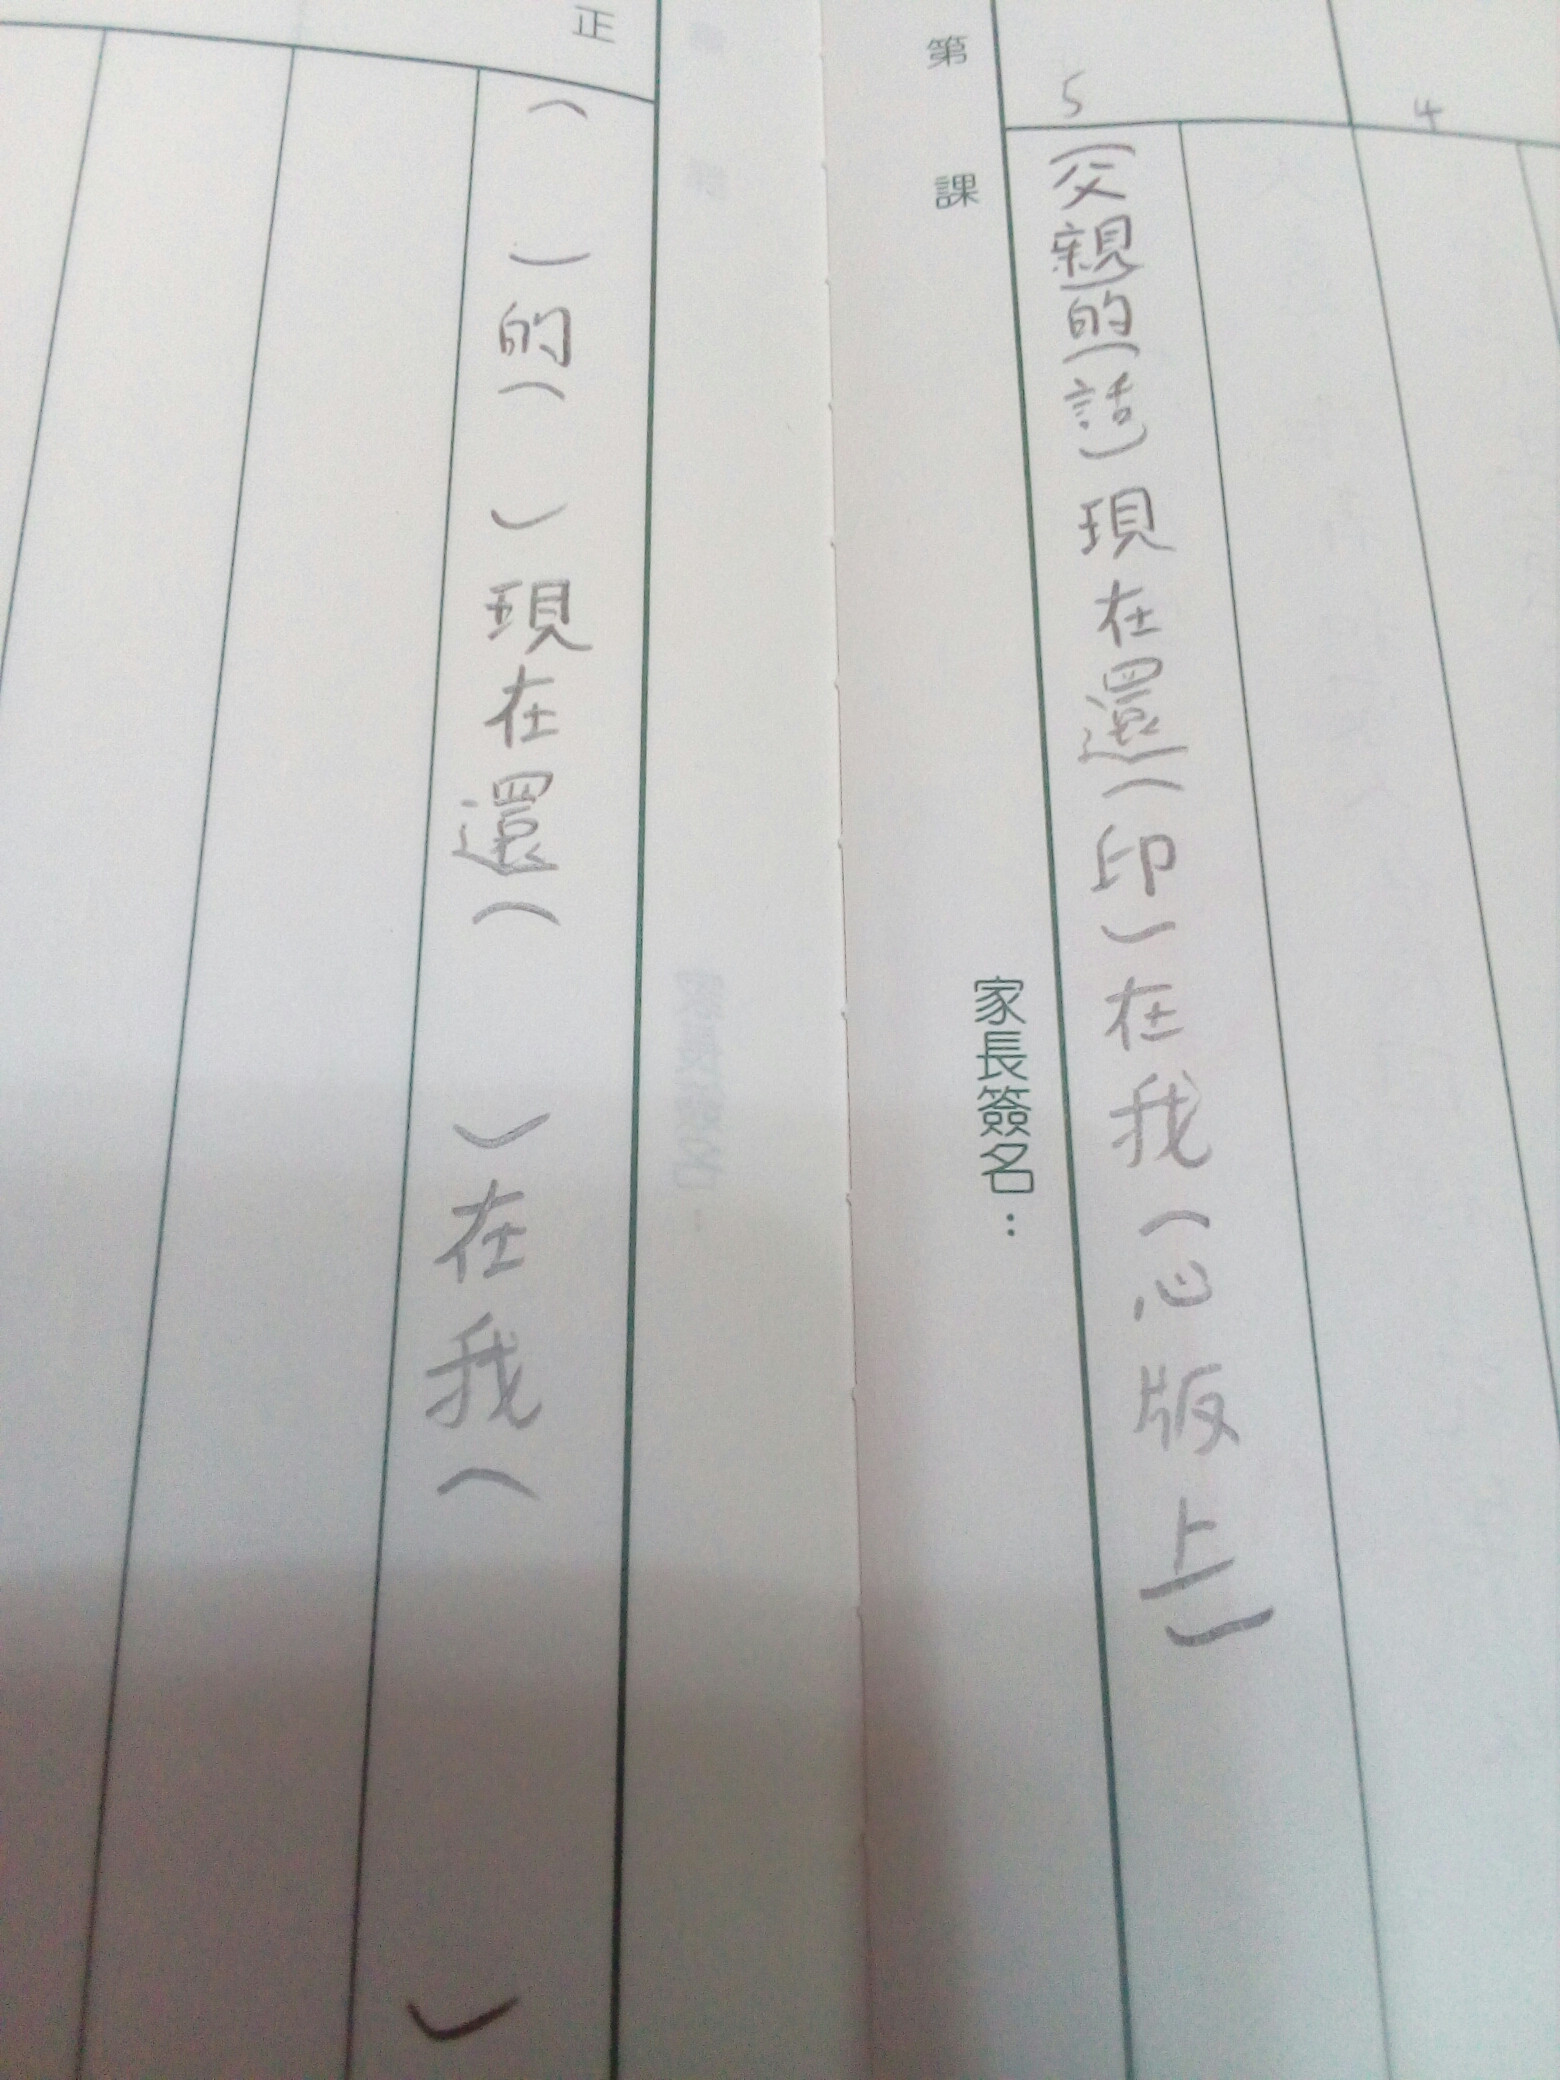 4
5
(父親)的(話)現在還(印)在我(心版上)
第 課 家長簽名：
正
( )的( )現在還( )在我( )